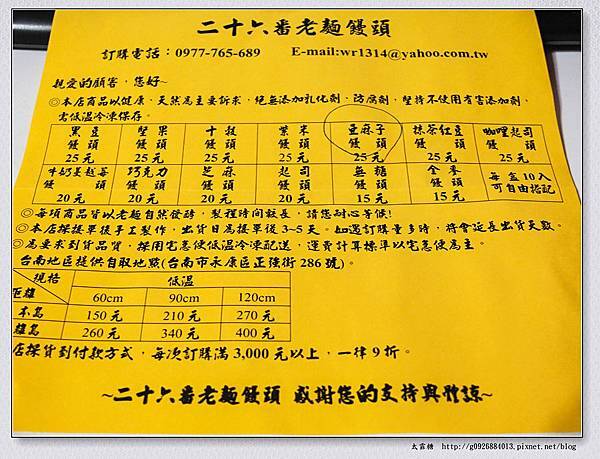 二十六番老麵饅頭
訂購電話:0977-765-689 E-mail:wr1314@yahoo.com.tw
親愛的顧客,您好~
◎本店商品以健康、天然為主要訴求,絕無添加乳化劑、防腐劑,堅持不使用有害添加劑,
需低溫冷凍保存。
黑豆 堅果 十穀 紫米 亞麻子 抹茶紅豆 咖哩起司
饅頭 饅頭 饅頭 饅頭 饅頭 饅頭 饅頭
25元 25元 25元 25元 25元 25元 25元
牛奶蔓越莓 巧克力 芝麻 起司 無糖 全麥 每盒10入
饅頭 饅頭 饅頭 饅頭 饅頭 饅頭 可自由搭配
20元 20元 20元 20元 15元 15元
◎每項商品皆以老麵自然發酵,製程時間較長,請您耐心等候!
◎本店採接單後手工製作,出貨日為接單後3~5天。如遇訂購量多時,將會延長出貨天數。
◎為要求到貨品質,採用宅急便低溫冷凍配送,運費計算標準以宅急便為主。
台南地區提供自取地點(台南市永康區正強街286號)。
規格 低溫
距離 60cm 90cm 120cm
本島 150元 210元 270元
離島 260元 340元 400元
店採貨到付款方式,每次訂購滿3,000元以上,一律9折。
~二十六番老麵饅頭 感謝您的支持與體諒~
太雲糖 http://g0926884013.pixnet.net/blog